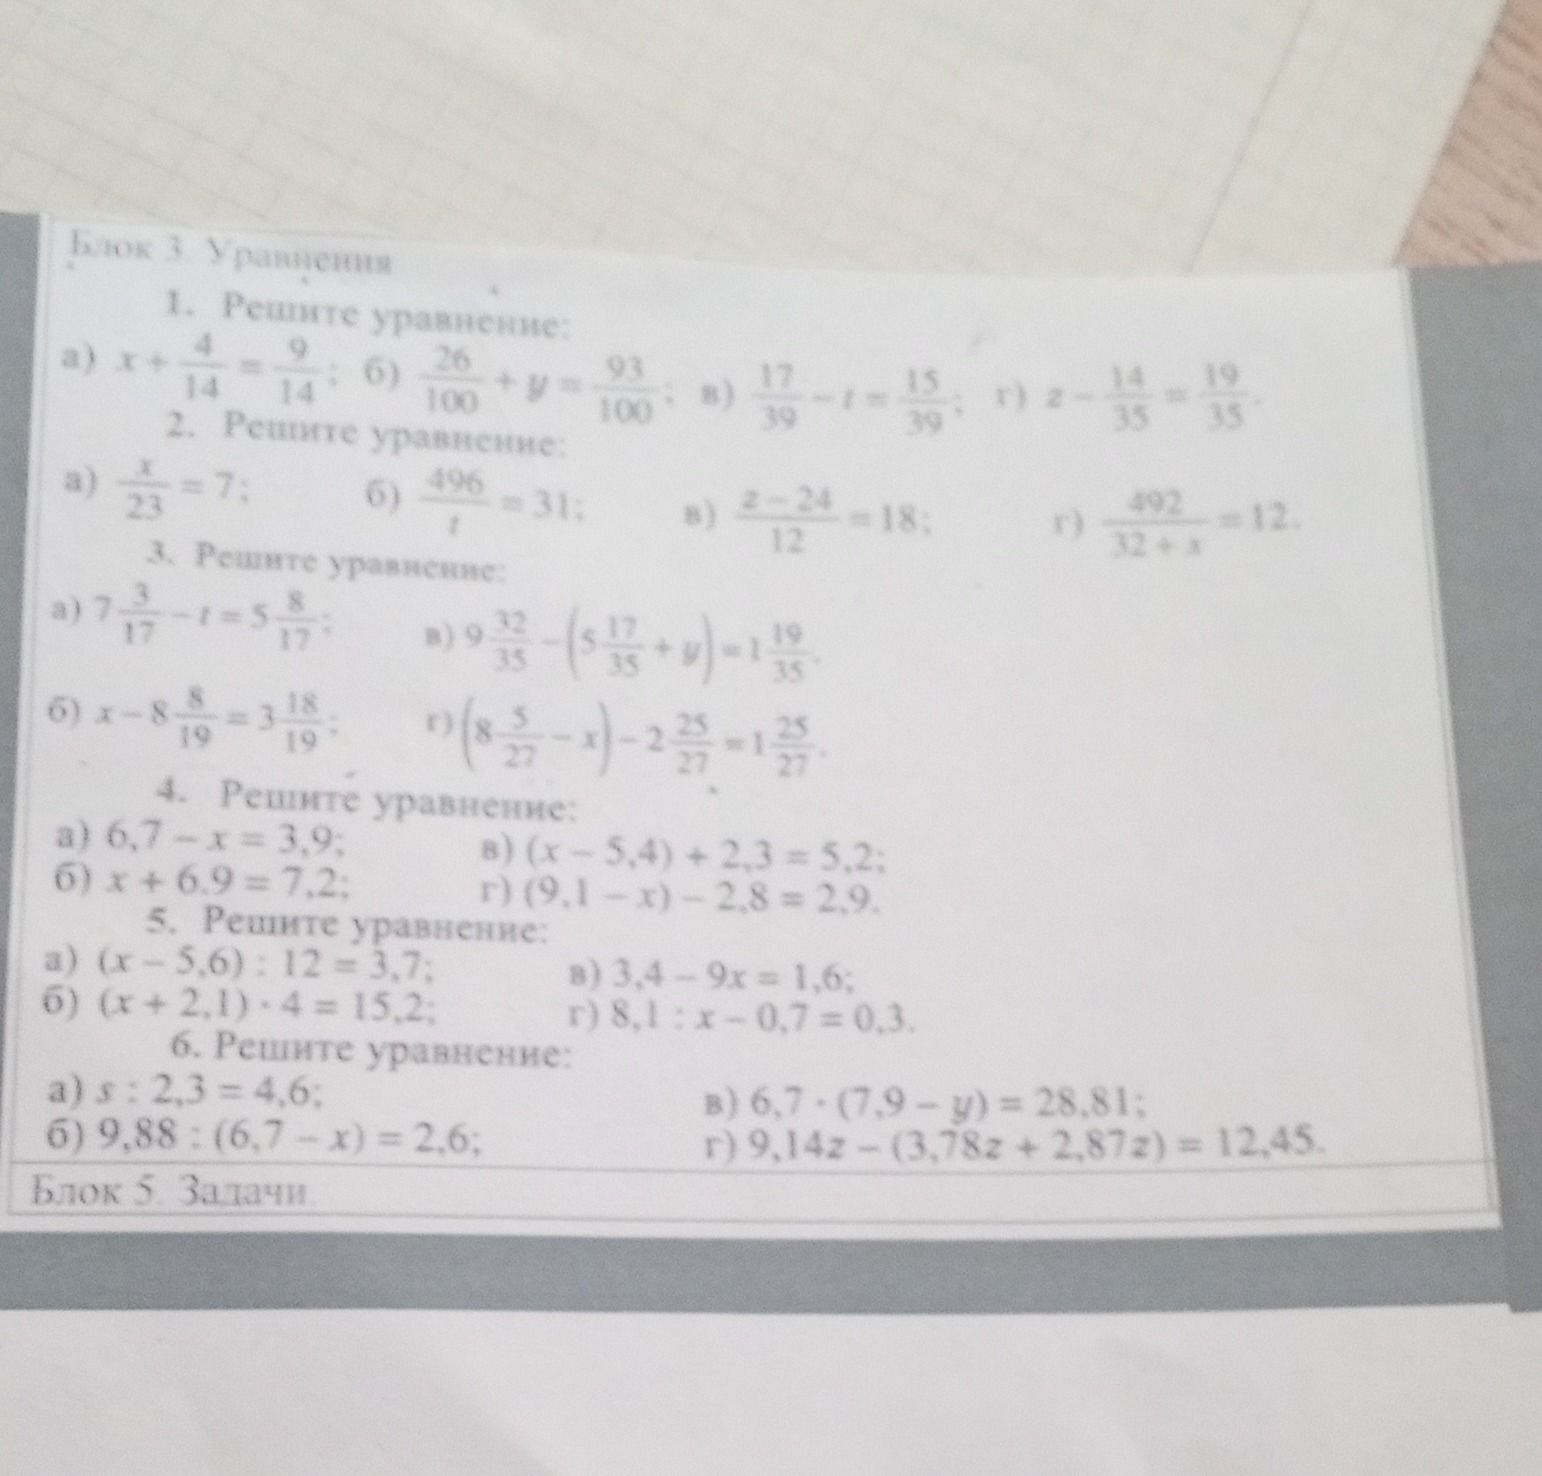 Блок 3. Уравнения
1. Решите уравнение:
а) x + 4/14 = 9/14; б) 26/100 + y = 93/100; в) 17/39 − t = 15/39; г) z − 14/35 = 19/35.
2. Решите уравнение:
а) x/23 = 7; б) 496/t = 31; в) (z − 24)/12 = 18; г) 492/(32 + x) = 12.
3. Решите уравнение:
а) 7 3/17 − t = 5 8/17; в) 9 32/35 − (5 17/35 + y) = 1 19/35.
б) x − 8 8/19 = 3 18/19; г) (8 5/27 − x) − 2 25/27 = 1 25/27.
4. Решите уравнение:
а) 6,7 − x = 3,9; в) (x − 5,4) + 2,3 = 5,2;
б) x + 6.9 = 7,2; г) (9,1 − x) − 2,8 = 2,9.
5. Решите уравнение:
а) (x − 5,6) : 12 = 3,7; в) 3,4 − 9x = 1,6;
б) (x + 2,1) · 4 = 15,2; г) 8,1 : x − 0,7 = 0,3.
6. Решите уравнение:
а) s : 2,3 = 4,6; в) 6,7 · (7,9 − y) = 28,81;
б) 9,88 : (6,7 − x) = 2,6; г) 9,14z − (3,78z + 2,87z) = 12,45.
Блок 5. Задачи